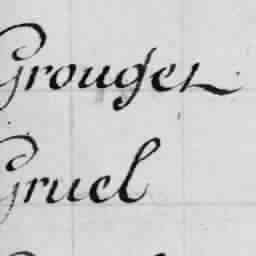 Grouger
Gruel